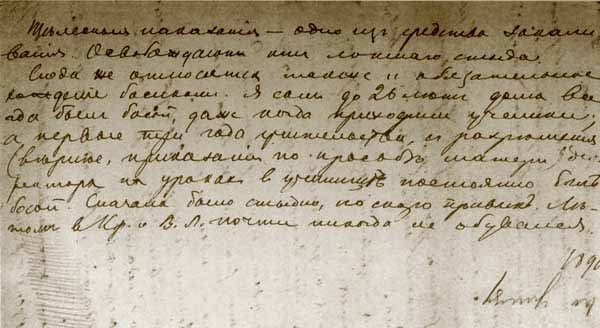 Тѣлесныя наказанія — одно изъ средствъ закали
ванія. Освобождающія отъ ложнаго стыда.
Сюда же относится также и обязательное
хожденіе босикомъ. Я самъ до 26 лѣтъ дома все
гда былъ босой, даже когда приходили ученики;
а первые три года учительства, съ разрѣшенія
(вѣрнѣе, приказанія по просьбѣ матери) ди
ректора на урокахъ въ училищѣ постоянно былъ
босой. Сначала было стыдно, но скоро привыкъ. Лѣ
томъ въ Кр. и В. Л. почти никогда не обувался.